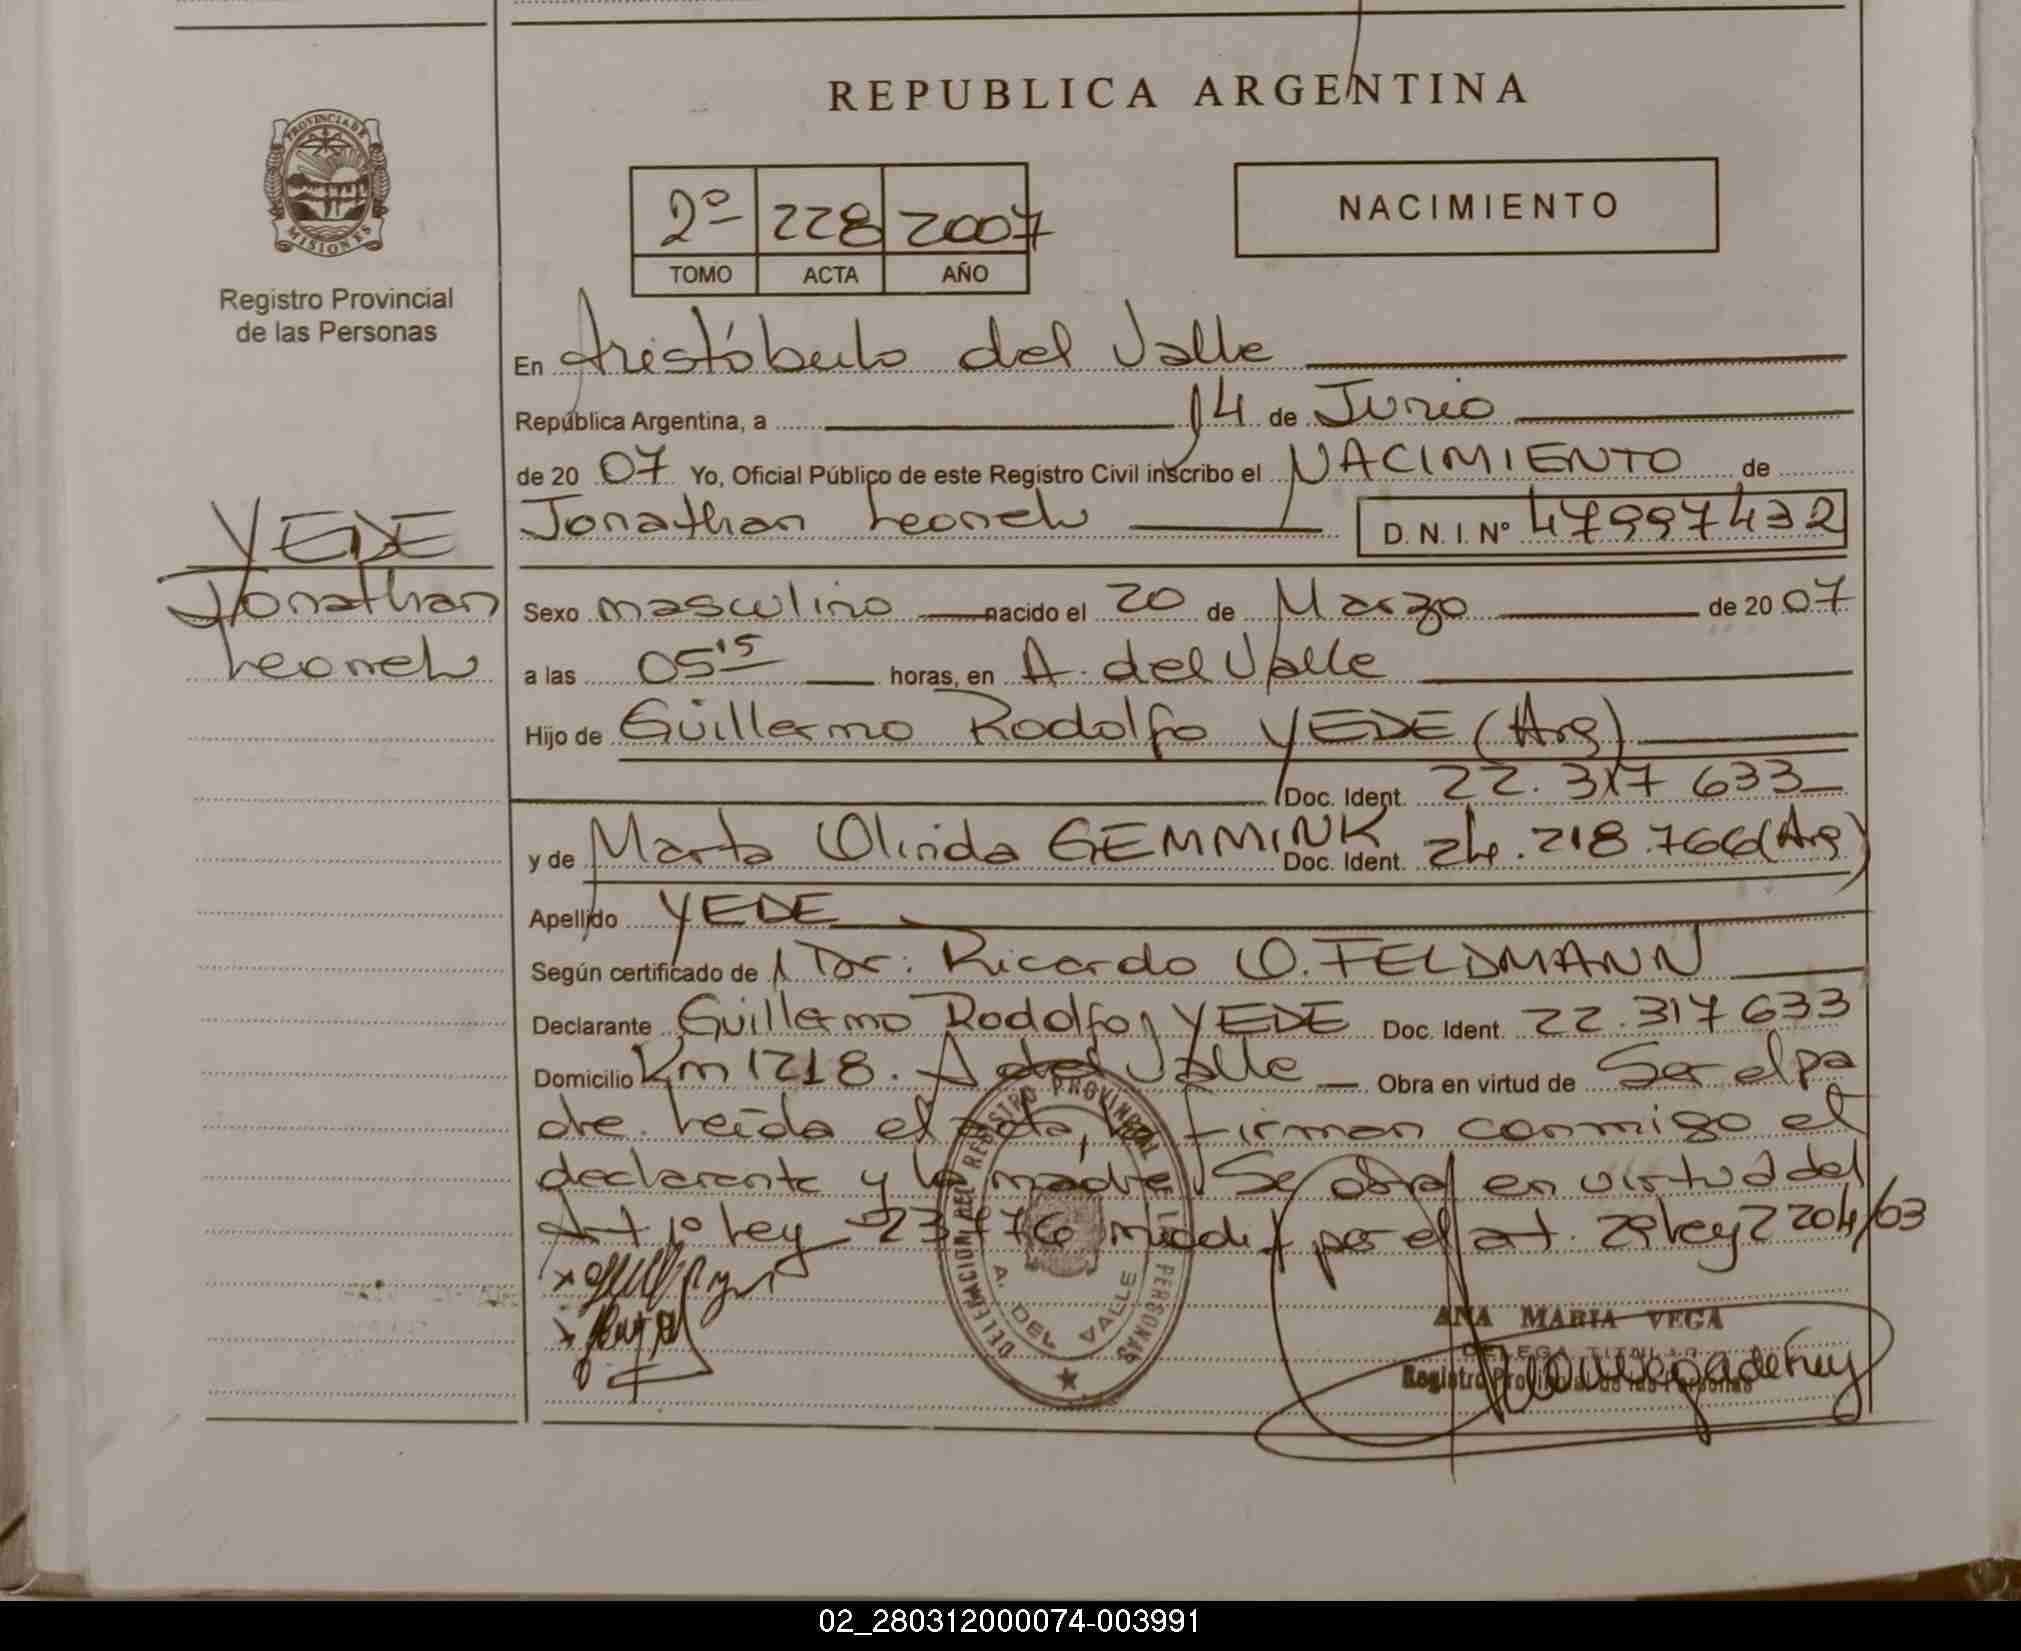 REPUBLICA ARGENTINA
PROVINCIA DE
MISIONES
Registro Provincial
de las Personas
2º 228 2007
TOMO ACTA AÑO
NACIMIENTO
En Aristóbulo del Valle
República Argentina, a 14 de Junio
de 20 07 Yo, Oficial Público de este Registro Civil inscribo el NACIMIENTO de
Jonathan Leonel D. N. I. Nº 47997432
YEDE
Jonathan
Leonel
Sexo masculino nacido el 20 de Marzo de 20 07
a las 05 15 horas, en A. del Valle
Hijo de Guillermo Rodolfo YEDE (Arg)
Doc. Ident. 22.317 633
y de Marta Olinda GEMMINK Doc. Ident. 24.218.766 (Arg)
Apellido YEDE
Según certificado de Dr. Ricardo O. FELDMANN
Declarante Guillermo Rodolfo YEDE Doc. Ident. 22.317 633
Domicilio Km 1218. A del Valle Obra en virtud de Ser el pa
dre. Leída el acta, firman conmigo el
declarante y la madre. Se obra en virtud del
Art 1º Ley 23776 modif por el art. 29 Ley 2204/03
DELEGACION DEL REGISTRO PROVINCIAL DE LAS PERSONAS
A. DEL VALLE
ANA MARIA VEGA
DELEGA TITULAR
Registro Provincial de las Personas
02_280312000074-003991